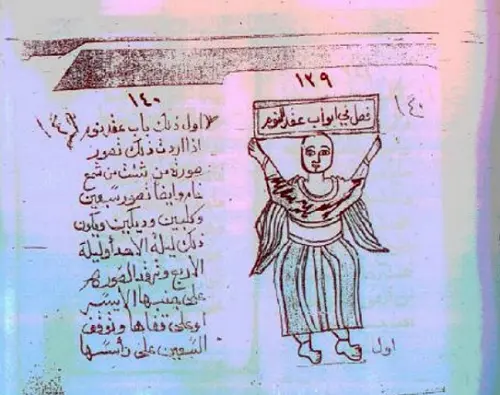 ١٣٩
١٤٠
فصل في ابواب عقد النوم
اول
١٤٠
اول ذلك باب عقد نوم
اذا اردت ذلك تصور
صورة من شئت من شمع
خام وايضا تصور سبعين
وكلبين وديكين ويكون
ذلك ليلة الاحد او ليلة
الاربع وترقد الصوره
على جنبها الايسر
او على قفاها وتوقف
السبعين على رأسها